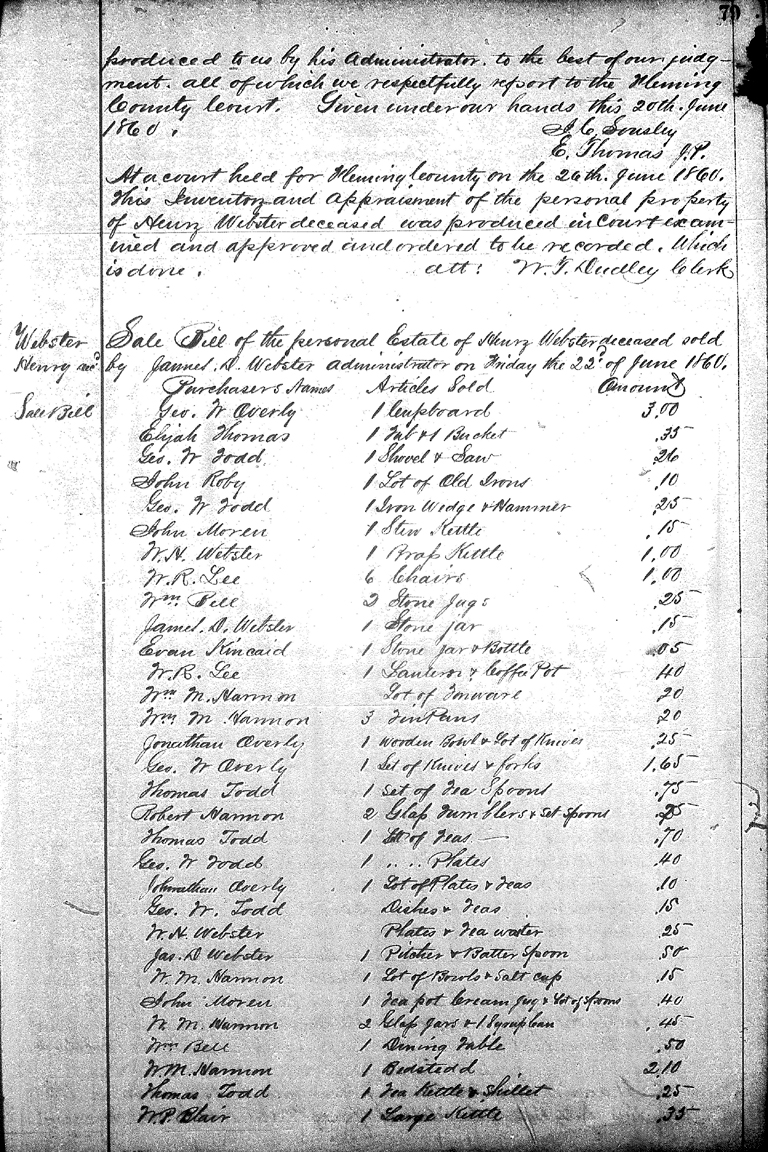 79
produced to us by his Administrator. to the best of our judg-
ment. all of which we respectfully report to the Fleming
County Court. Given under our hands this 20th. June
1860.
J. C. Sousley
E. Thomas J.P.
At a court held for Fleming County on the 26th. June 1860.
This Inventory and Appraisment of the personal property
of Henry Webster deceased was produced in Court exam-
ined and approved and ordered to be recorded. Which
is done. att: W. T. Dudley Clerk
Webster Sale Bill of the personal Estate of Henry Webster deceased sold
Henry by James. D. Webster Administrator on Friday the 22d of June 1860.
Purchasers Names Articles Sold Amount
Sale Bill Geo. W Overly 1 Cupboard 3.00
Elijah Thomas 1 Tub & 1 Bucket .35
Geo. W Todd 1 Shovel & Saw .26
John Roby 1 Lot of Old Irons .10
Geo. W Todd 1 Iron Wedge & Hammer .25
John Moren 1 Stew Kettle .15
W. H. Webster 1 Brass Kettle 1.00
W. R. Lee 6 Chairs 1.00
Wm Bell 2 Stone Jugs .25
James. D. Webster 1 Stone jar .15
Evan Kincaid 1 Stone jar & Bottle .05
W. R. Lee 1 Lantern & Coffee Pot 40
Wm M. Harmon Lot of Tinware 20
Wm M Harmon 3 Tin Pans 20
Jonathan Overly 1 Wooden Bowl & Lot of Knives .25
Geo. W Overly 1 Set of Knives & forks 1.65
Thomas Todd 1 Set of Tea Spoons .75
Robert Harmon 2 Glass Tumblers & Set Spoons .25
Thomas Todd 1 Lot of Teas .70
Geo. W Todd 1 " " Plates .40
Johnathan Overly 1 Lot of Plates & Teas .10
Geo. W. Todd Dishes & Teas .15
W. H. Webster Plates & Tea waiter .25
Jas. D Webster 1 Pitcher & Batter Spoon .50
W. M. Harmon 1 Lot of Bowls & Salt cup .15
John Moren 1 Tea pot Cream Jug & Lot of Spoons .40
W. M. Harmon 2 Glass Jars & 1 Syrup Can .45
Wm Bell 1 Dining Table .50
W. M. Harmon 1 Bedstedd 2.10
Thomas Todd 1 Tea Kettle & Skillet .25
W. P. Blair 1 Large Kettle .35